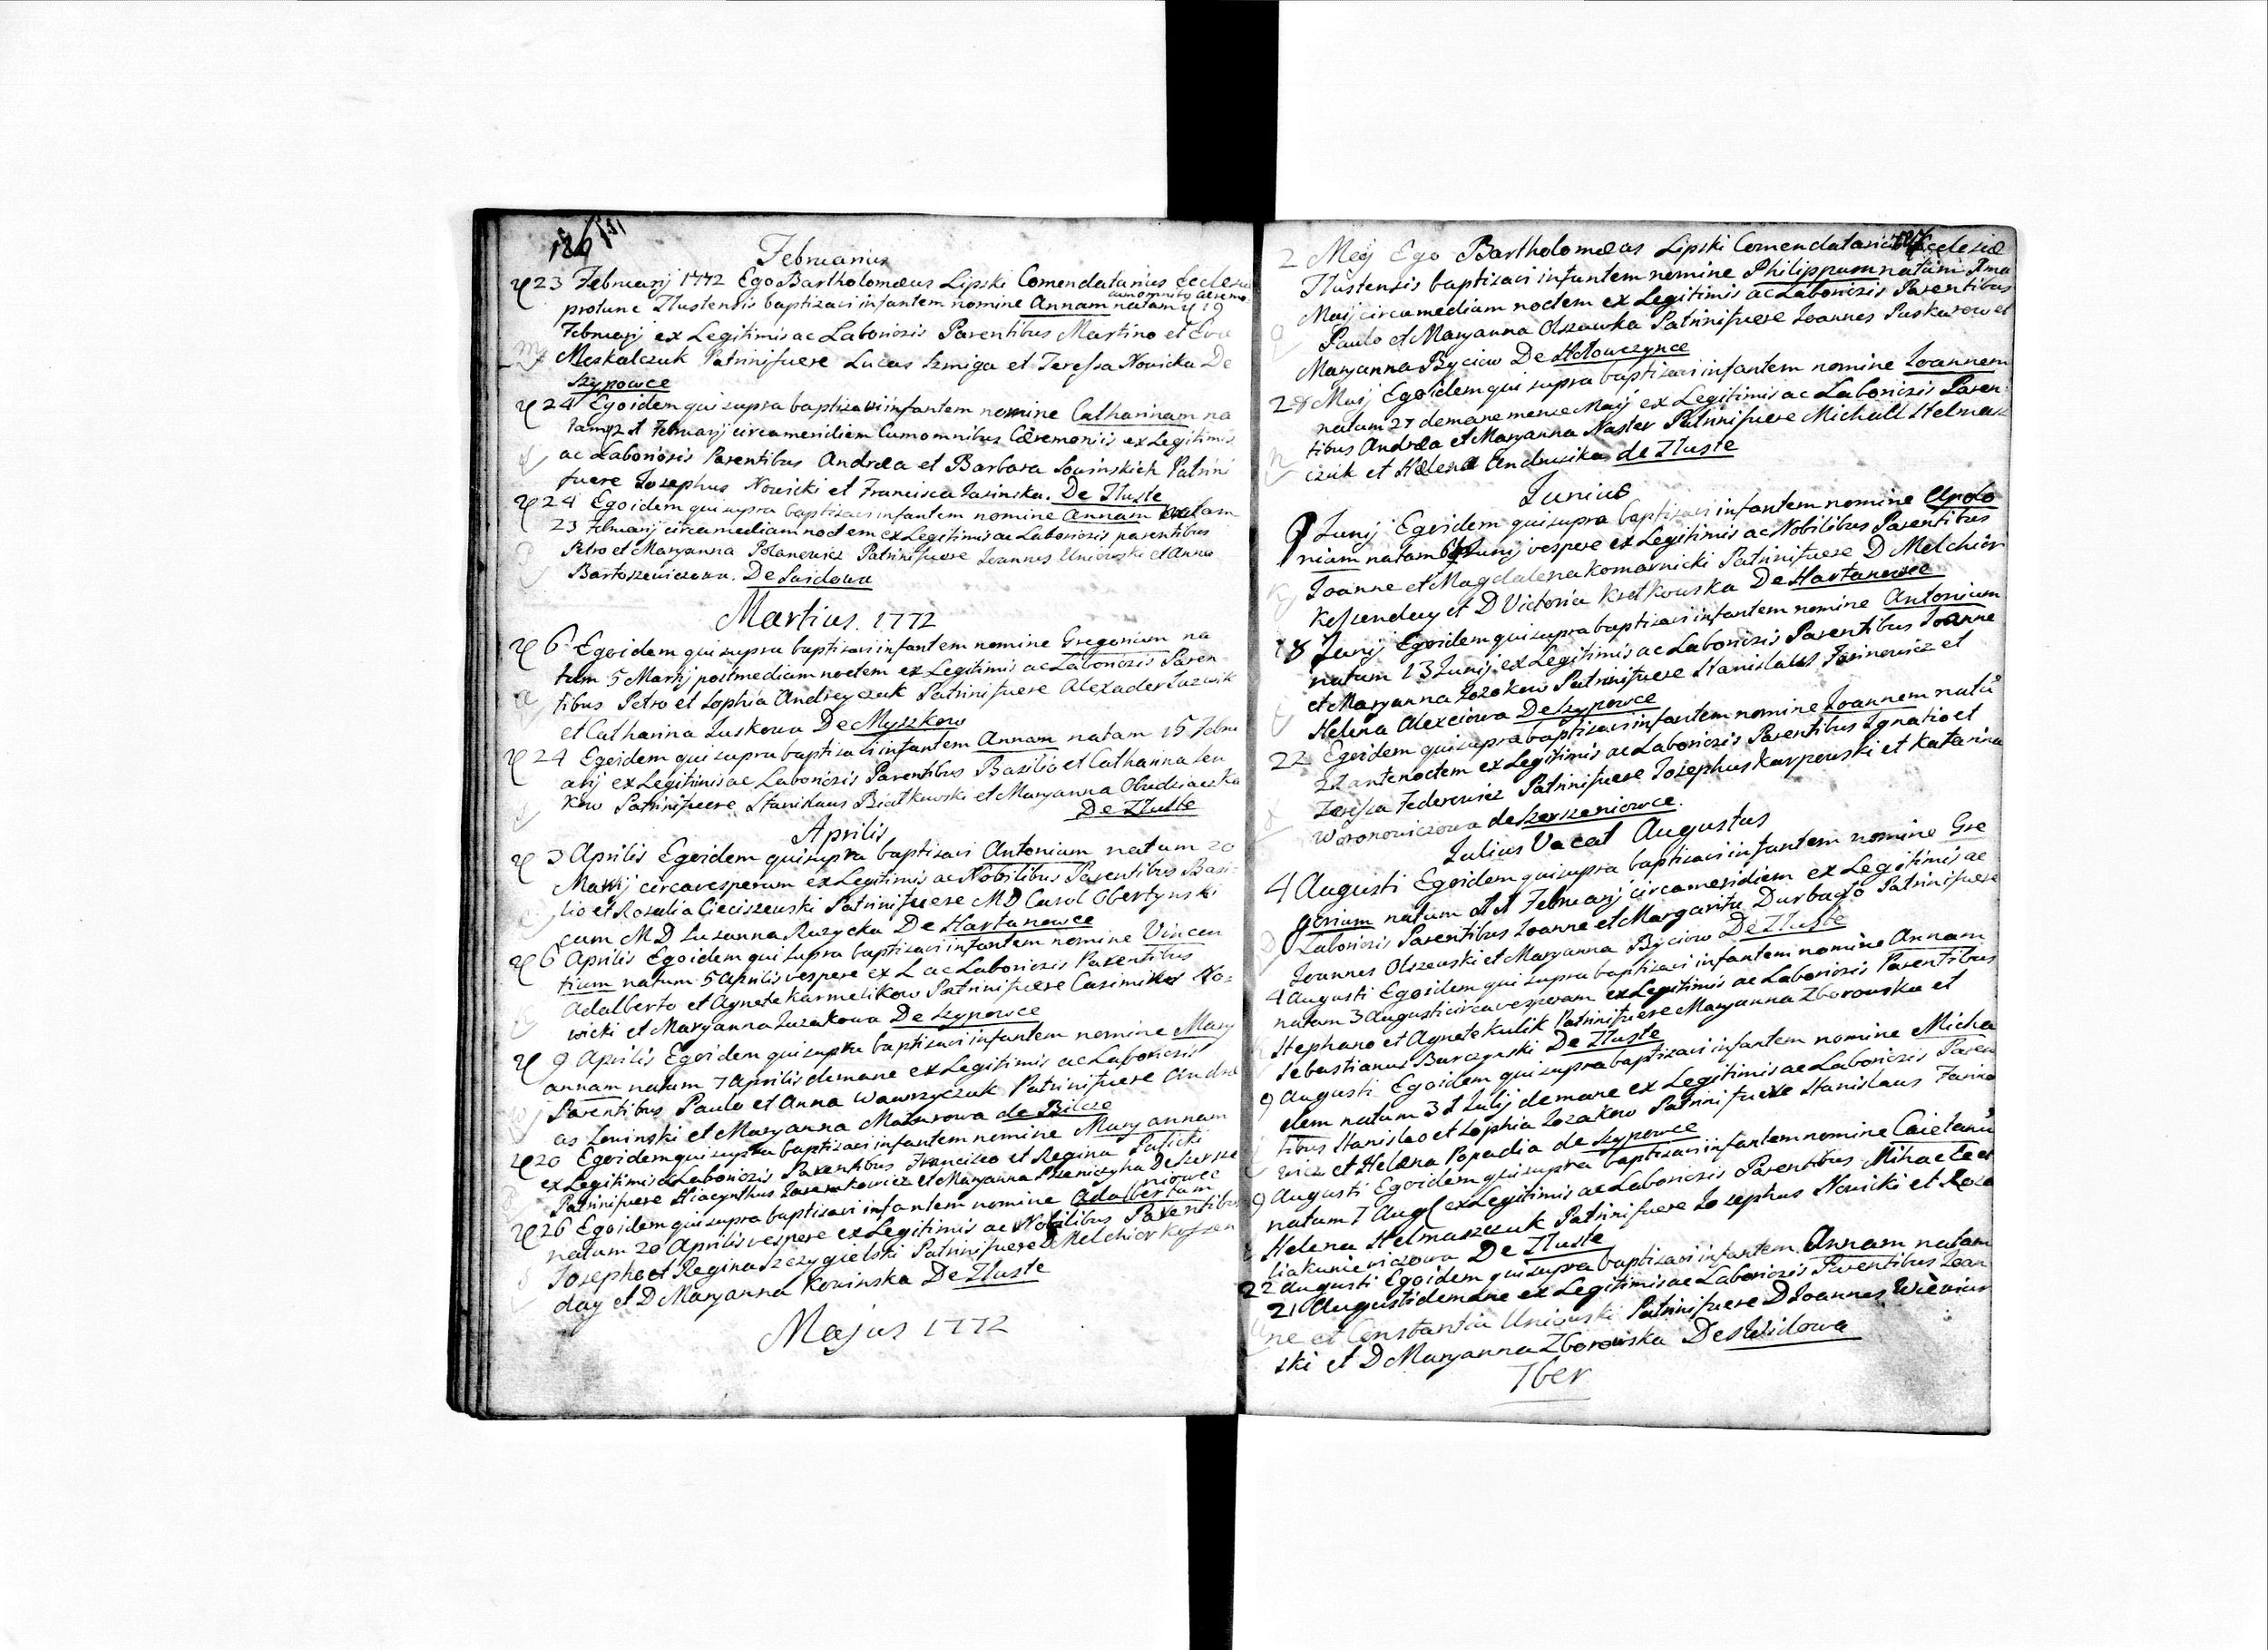 Februarius
23 Februarij 1772 Ego Bartholomæus Lipski Comendatarius Ecclesiæ
protunc Tlustensis baptizavi infantem nomine Annam natam 19
Februarij ex Legitimis ac Laboriosis Parentibus Martino et Eva
Moskalczuk Patrini fuere Lucas Szmiga et Teressa Nowicka De
Szypowce
24 Ego idem qui supra baptizavi infantem nomine Catharinam na
Februarij circa meridiem Cum omnibus Cæremoniis ex Legitimis
ac Laboriosis Parentibus Andræa et Barbara Patrini
fuere Iosephus Nowicki et Francisca Jasinska. De Tluste
24 Ego idem qui supra baptizavi infantem nomine Annam natam
23 Februarij circa mediam noctem ex Legitimis ac Laboriosis parentibus
Petro et Maryanna Polanewicz Patrini fuere Ioannes Uniowski et Anna
Bartoszewiczowa. De
Martius. 1772
6 Ego idem qui supra baptizavi infantem nomine Gregorium na
tum 5 Martij post mediam noctem ex Legitimis ac Laboriosis Paren
tibus Petro et Sophia Andreyczuk Patrini fuere Alexader
et Catharina Luskowa De Myszkow
24 Ego idem qui supra baptizavi infantem Annam natam 15 Febru
arij ex Legitimis ac Laboriosis Parentibus Basilio et Catharina
kow Patrini fuere Stanislaus Białkowski et Maryanna
De Tluste
Aprilis
3 Aprilis Ego idem qui supra baptizavi Antonium natum 20
Martij circa vesperum ex Legitimis ac Nobilibus Parentibus Basi
lio et Rosalia Cieciszewski Patrini fuere MD Carol Obertynski
cum MD Zuzanna Ruzycka De Hartanowce
6 Aprilis Ego idem qui supra baptizavi infantem nomine Vincen
tium natum 5 Aprilis vespere ex L ac Laboriosis Parentibus
Adalberto et Agnete Karmelikow Patrini fuere Casimirus No=
wicki et Maryanna Luzakowa De Szypowce
9 Aprilis Ego idem qui supra baptizavi infantem nomine Mary
annam natam 7 Aprilis de mane ex Legitimis ac Laboriosis
Parentibus Paulo et Anna Wawrzyczuk Patrini fuere Andre
as Lewinski et Maryanna Mazurowa de Bilcze
20 Ego idem qui supra baptizavi infantem nomine Maryannam
ex Legitimis ac Laboriosis Parentibus Francisco et Regina
Patrini fuere Hiacynthus et Maryanna Pszeniczyna De Szersze
niowce
26 Ego idem qui supra baptizavi infantem nomine Adalbertum
natum 20 Aprilis vespere ex Legitimis ac Nobilibus Parentibus
Josepho et Regina Szczygielski Patrini fuere D Melchior Kossen
day et D Maryanna Kozinska De Tluste
Majus 1772
2 Maij Ego Bartholomæus Lipski Comendatarius Ecclesiæ
Tlustensis baptizavi infantem nomine Philippum natum 1ma
Maij circa mediam noctem ex Legitimis ac Laboriosis Parentibus
Paulo et Maryanna Olszowka Patrini fuere Ioannes Puskarow et
Maryanna Byciow De Hołowczynce
Maij Ego idem qui supra baptizavi infantem nomine Ioannem
natum 27 de mane mense Maij ex Legitimis ac Laboriosis Paren
tibus Andræa et Maryanna Naster Patrini fuere Michall Stelmasz
czuk et Helena Andrusika de Tluste
Iunius
Iunij Ego idem qui supra baptizavi infantem nomine Apolo
niam natam Iunij vespere ex Legitimis ac Nobilibus Parentibus
Ioanne et Magdalena Komarnicki Patrini fuere D Melchior
Kossenday et D Victoria Kretkowska De Hartanowce
18 Junij Ego idem qui supra baptizavi infantem nomine Antonium
natum 13 Iunij ex Legitimis ac Laboriosis Parentibus Ioanne
et Maryanna Kozakow Patrini fuere Stanislaus Jasinowicz et
Helena Alexciowa De Szypowce
22 Ego idem qui supra baptizavi infantem nomine Ioannem natū
21 ante noctem ex Legitimis ac Laboriosis Parentibus Ignatio et
Teressa Federowicz Patrini fuere Iosephus Karpowski et Katarina
Woronowiczowa de Szerszeniowce.
Iulius Vacat Augustus
4 Augusti Ego idem qui supra baptizavi infantem nomine Gre
gorium natum Februarij circa meridiem ex Legitimis ac
Laboriosis Parentibus Ioanne et Margarita Patrini fuere
Ioannes Olszewski et Maryanna Byciow De Tluste
4 Augusti Ego idem qui supra baptizavi infantem nomine Annam
natam 3 Augusti circa vesperam ex Legitimis ac Laboriosis Parentibus
Stephano et Agnete Kulik Patrini fuere Maryanna Zborowska et
Sebastianus Burczynski De Tluste
9 Augusti Ego idem qui supra baptizavi infantem nomine Micha
elem natum 31 Iulij de mane ex Legitimis ac Laboriosis Paren
tibus Stanislao et Sophia Kozakow Patrini fuere Stanislaus Jasino
wicz et Helena Popadia de Szypowce
9 Augusti Ego idem qui supra baptizavi infantem nomine Caietanū
natum 7 Aug ex Legitimis ac Laboriosis Parentibus Mihaele et
Helena Stelmaszczuk Patrini fuere Iosephus Nowicki et Roza
lia Kuniewiczowa De Tluste
22 Augusti Ego idem qui supra baptizavi infantem Annam natam
21 Augusti de mane ex Legitimis ac Laboriosis Parentibus Ioan
ne et Constantia Uniowski Patrini fuere D Ioannes Wiewiur
ski et D Maryanna Zborowska De Swidowa
7ber